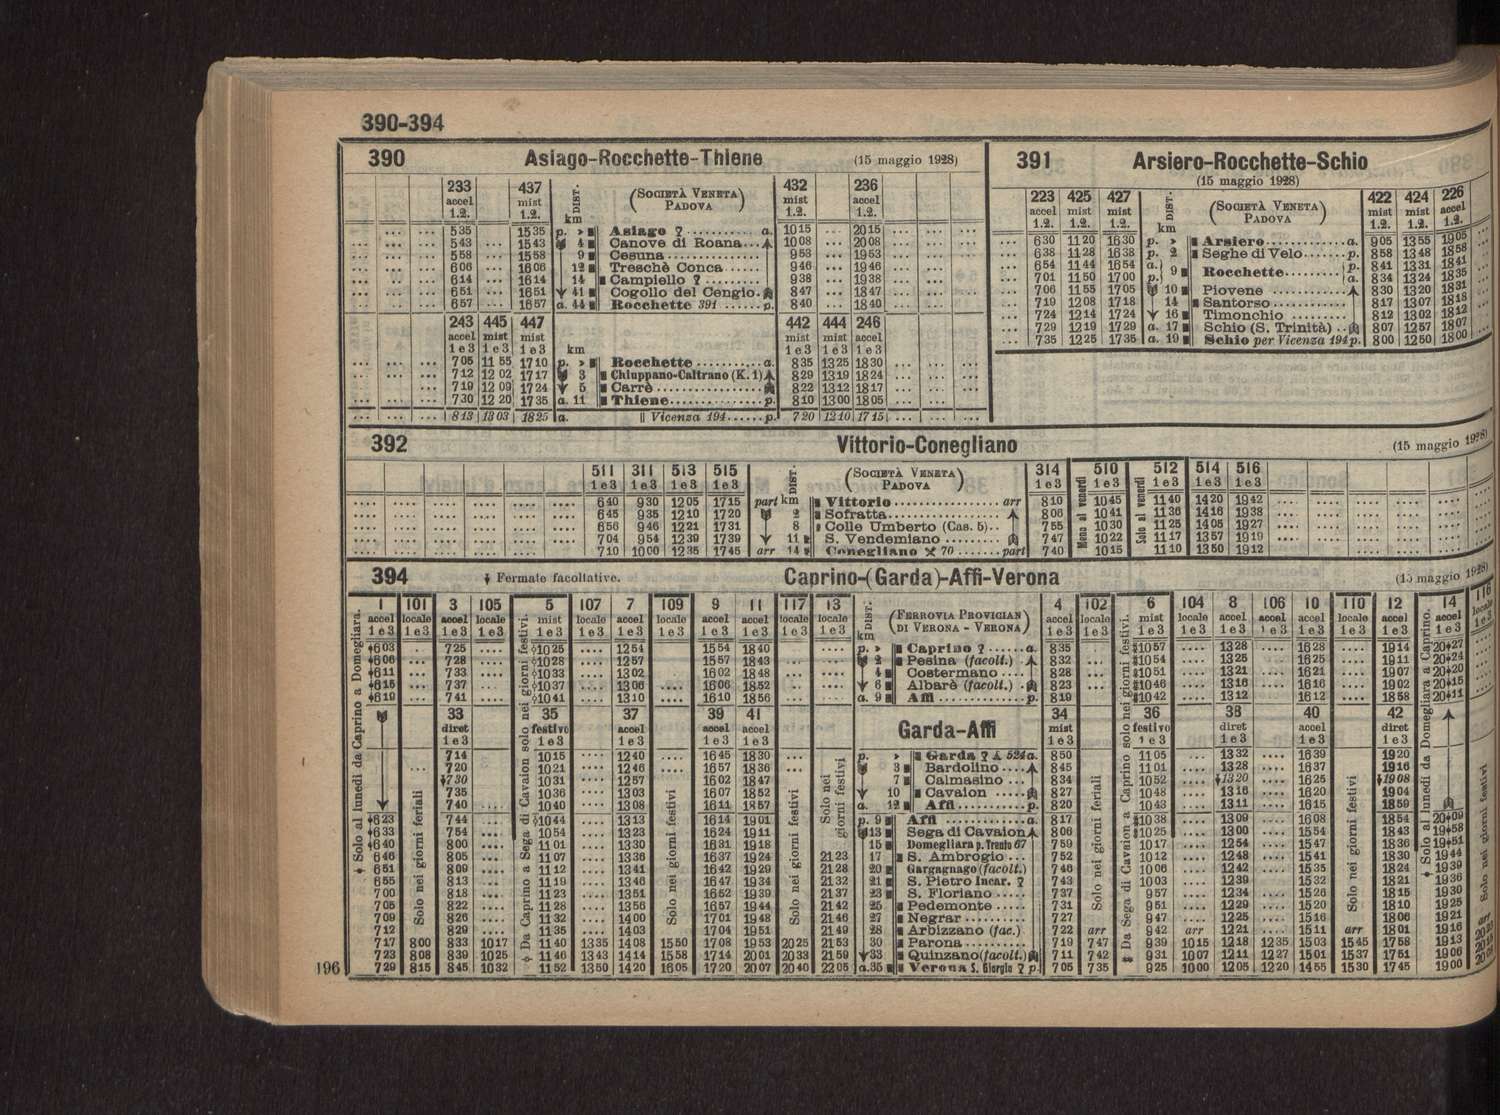 390-394
390 Asiago-Rocchette-Thiene (15 maggio 1928)
233 437 DIST. (SOCIETÀ VENETA PADOVA) 432 236
accel mist km mist accel
1.2. 1.2. 1.2. 1.2.
535 1535 p. Asiago a. 1015 2015
543 1543 4 Canove di Roana 1008 2008
558 1558 9 Cesuna 953 1953
606 1606 12 Treschè Conca 946 1946
614 1614 14 Campiello 938 1938
651 1651 41 Cogollo del Cengio 847 1847
657 1657 a. 44 Rocchette 391 p. 840 1840
243 445 447 442 444 246
accel mist mist mist mist accel
1e3 1e3 1e3 km 1e3 1e3 1e3
705 1155 1710 p. Rocchette a. 835 1325 1830
712 1202 1717 3 Chiuppano-Caltrano (K. 1) 829 1319 1824
719 1209 1724 5 Carrè 822 1312 1817
730 1220 1735 a. 11 Thiene p. 810 1300 1805
813 1303 1825 a. Vicenza 194 p. 720 1210 1715
391 Arsiero-Rocchette-Schio
(15 maggio 1928)
223 425 427 DIST. (SOCIETÀ VENETA PADOVA) 422 424 226
accel mist mist km mist mist accel
1.2. 1.2. 1.2. 1.2. 1.2. 1.2.
630 1120 1630 p. Arsiero a. 905 1355 1905
638 1128 1638 p. 2 Seghe di Velo p. 858 1348 1858
654 1144 1654 a. 9 Rocchette p. 841 1331 1841
701 1150 1700 p. a. 834 1324 1835
706 1155 1705 10 Piovene 830 1320 1831
719 1208 1718 14 Santorso 817 1307 1818
724 1214 1724 16 Timonchio 812 1302 1812
729 1219 1729 a. 17 Schio (S. Trinità) 807 1257 1807
735 1225 1735 a. 19 Schio per Vicenza 194 p. 800 1250 1800
392 Vittorio-Conegliano (15 maggio 1928)
511 311 513 515 DIST. (SOCIETÀ VENETA PADOVA) 314 510 512 514 516
1e3 1e3 1e3 1e3 1e3 1e3 1e3 1e3 1e3
Meno al venerdì
Solo al venerdì
640 930 1205 1715 part km Vittorio arr 810 1045 1140 1420 1942
645 935 1210 1720 2 Soffratta 806 1041 1136 1416 1938
656 946 1221 1731 8 Colle Umberto (Cas. 5) 755 1030 1125 1405 1927
704 954 1239 1739 11 S. Vendemiano 747 1022 1117 1357 1919
710 1000 1235 1745 arr 14 Conegliano 70 part 740 1015 1110 1350 1912
394 Fermate facoltative. Caprino-(Garda)-Affi-Verona (15 maggio 1928)
1 101 3 105 5 107 7 109 9 11 117 13 DIST. (FERROVIA PROVICIAN DI VERONA - VERONA) 4 102 6 104 8 106 10 110 12 14 116
accel locale accel locale mist locale accel locale accel accel locale locale km accel locale mist locale mist accel accel locale accel accel locale
1e3 1e3 1e3 1e3 1e3 1e3 1e3 1e3 1e3 1e3 1e3 1e3 1e3 1e3 1e3 1e3 1e3 1e3 1e3 1e3 1e3 1e3 1e3
603 725 1025 1254 1554 1840 p. Caprino a. 835 1057 1328 1628 1914 2027
606 728 1028 1257 1557 1843 2 Pesina (facolt.) 832 1054 1325 1625 1911 2024
611 733 1033 1302 1602 1848 4 Costermano 828 1051 1321 1621 1907 2020
615 737 1037 1306 1606 1852 6 Albarè (facolt.) 823 1046 1316 1616 1902 2015
619 741 1041 1310 1610 1856 a. 9 Affi p. 819 1042 1312 1612 1858 2011
33 35 37 39 41 Garda-Affi 34 36 38 40 42
diret festivo accel accel accel mist festivo diret accel diret
1e3 1e3 1e3 1e3 1e3 1e3 1e3 1e3 1e3 1e3
714 1015 1240 1645 1830 p. Garda 524 a. 850 1105 1332 1639 1920
720 1021 1246 1657 1836 3 Bardolino 845 1101 1328 1637 1916
730 1031 1257 1602 1847 7 Calmasino 834 1052 1320 1625 1908
735 1036 1303 1607 1852 10 Cavaion 827 1048 1316 1620 1904
740 1040 1308 1611 1857 a. 12 Affi p. 820 1043 1311 1615 1859
623 744 1044 1313 1619 1901 p. 9 Affi a. 817 1038 1309 1608 1854 2009
633 754 1054 1323 1624 1911 13 Sega di Cavaion 806 1025 1300 1554 1843 1958
640 800 1101 1330 1631 1918 15 Domegliara p. Trento 67 759 1017 1254 1547 1836 1951
646 805 1107 1336 1637 1924 2123 17 S. Ambrogio 752 1012 1248 1541 1830 1944
651 809 1112 1341 1642 1929 2128 20 Gargagnago (facolt.) 746 1006 1242 1535 1824 1939
655 813 1116 1346 1647 1934 2132 21 S. Pietro Incar. 743 1003 1239 1532 1821 1936
700 818 1123 1351 1652 1939 2137 23 S. Floriano 737 957 1234 1526 1815 1930
705 822 1128 1356 1657 1944 2142 25 Pedemonte 731 951 1229 1520 1810 1925
709 826 1132 1400 1701 1948 2146 27 Negrar 727 947 1225 1516 1806 1921
712 829 1135 1403 1704 1951 2149 28 Arbizzano (fac.) 722 arr 942 arr 1221 1511 arr 1801 1916 arr
717 800 833 1017 1140 1335 1408 1550 1708 1953 2025 2153 30 Parona 719 747 939 1015 1218 1235 1503 1545 1758 1913
723 808 839 1025 1146 1343 1414 1558 1714 2001 2033 2159 33 Quinzano (facolt.) 711 742 931 1007 1211 1227 1501 1537 1751 1906
729 815 845 1032 1152 1350 1420 1605 1720 2007 2040 2205 a. 35 Verona S. Giorgio p. 705 735 925 1000 1205 1220 1455 1530 1745 1900
Solo al lunedì da Caprino a Domegliara.
Solo nei giorni feriali
Da Caprino a Sega di Cavaion solo nei giorni festivi.
Solo nei giorni festivi
Solo nei giorni festivi
Solo nei giorni festivi
Solo nei giorni feriali
Da Sega di Cavaion a Caprino solo nei giorni festivi.
Solo nei giorni festivi
Solo al lunedì da Domegliara a Caprino.
Solo nei giorni festivi
196